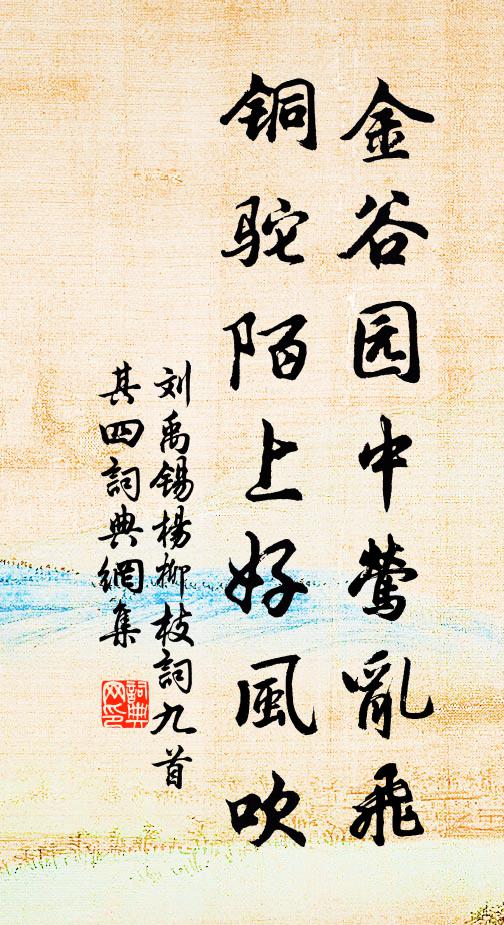 金谷园中莺亂飛
铜驼陌上好風吹
刘禹锡楊柳枝詞九首
其四詞典網集
詞典网印